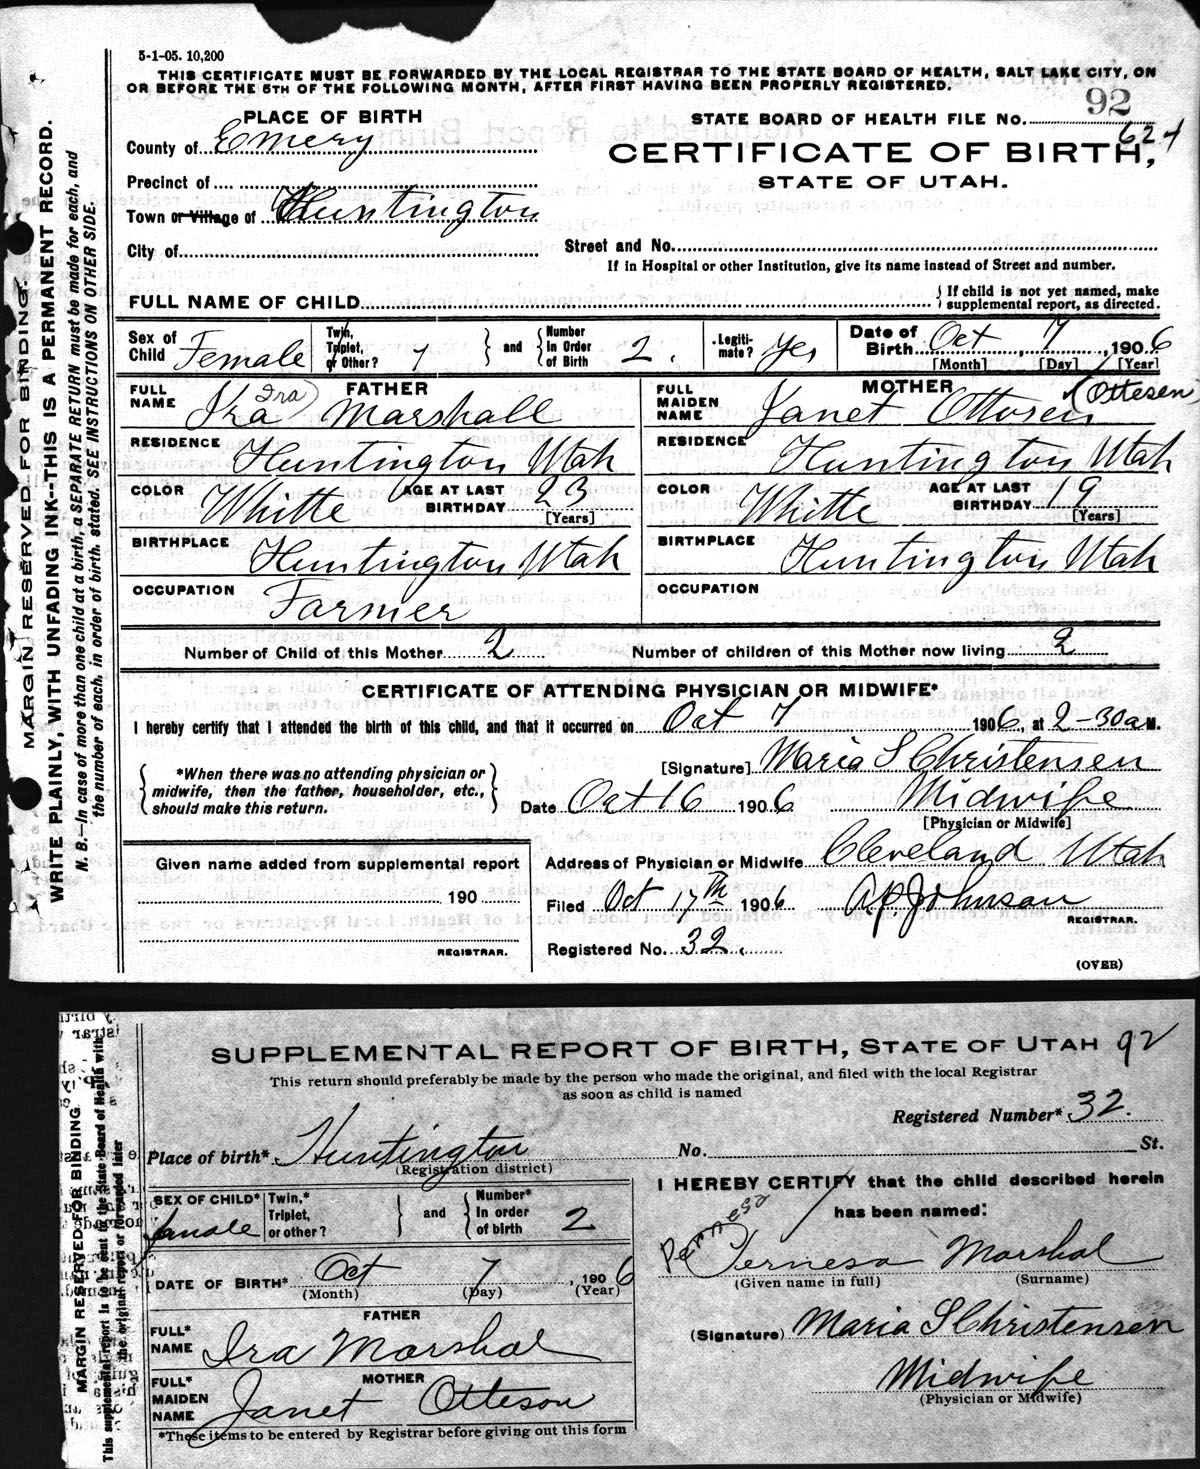 5-1-05. 10,200
THIS CERTIFICATE MUST BE FORWARDED BY THE LOCAL REGISTRAR TO THE STATE BOARD OF HEALTH, SALT LAKE CITY, ON
OR BEFORE THE 5TH OF THE FOLLOWING MONTH, AFTER FIRST HAVING BEEN PROPERLY REGISTERED.
MARGIN RESERVED FOR BINDING.
WRITE PLAINLY, WITH UNFADING INK--THIS IS A PERMANENT RECORD.
N. B.—In case of more than one child at a birth, a SEPARATE RETURN must be made for each, and
the number of each, in order of birth, stated. SEE INSTRUCTIONS ON OTHER SIDE.
PLACE OF BIRTH
County of Emery
Precinct of
Town or Village of Huntington
City of
STATE BOARD OF HEALTH FILE NO. 92
624
CERTIFICATE OF BIRTH,
STATE OF UTAH.
Street and No.
If in Hospital or other Institution, give its name instead of Street and number.
FULL NAME OF CHILD
If child is not yet named, make
supplemental report, as directed.
Sex of Child Female
Twin, Triplet, or Other? 1 and Number In Order of Birth 2.
Legitimate? Yes
Date of Birth Oct 7, 1906
[Month] [Day] [Year]
FATHER
FULL NAME Ira (Ira) Marshall
RESIDENCE Huntington Utah
COLOR Whitte AGE AT LAST BIRTHDAY 23
[Years]
BIRTHPLACE Huntington Utah
OCCUPATION Farmer
MOTHER
FULL MAIDEN NAME Janet Ottosen (Ottesen)
RESIDENCE Huntington Utah
COLOR Whitte AGE AT LAST BIRTHDAY 19
[Years]
BIRTHPLACE Huntington Utah
OCCUPATION
Number of Child of this Mother 2 Number of children of this Mother now living 2
CERTIFICATE OF ATTENDING PHYSICIAN OR MIDWIFE*
I hereby certify that I attended the birth of this child, and that it occurred on Oct 7 1906, at 2-30 a M.
*When there was no attending physician or
midwife, then the father, householder, etc.,
should make this return.
[Signature] Maria S Christensen
Date Oct 16 1906 Midwife
[Physician or Midwife]
Given name added from supplemental report
190
REGISTRAR.
Address of Physician or Midwife Cleveland Utah
Filed Oct 17th 1906 A.P. Johnson
REGISTRAR.
Registered No. 32.
(OVER)
MARGIN RESERVED FOR BINDING
This supplemental report is to be sent to the State Board of Health with
the original report or forwarded later
SUPPLEMENTAL REPORT OF BIRTH, STATE OF UTAH 92
This return should preferably be made by the person who made the original, and filed with the local Registrar
as soon as child is named
Registered Number* 32.
Place of birth* Huntington No. St.
(Registration district)
SEX OF CHILD* female
Twin,* Triplet, or other? and Number* In order of birth 2
DATE OF BIRTH* Oct 7, 1906
(Month) (Day) (Year)
FATHER
FULL* NAME Ira Marshal
MOTHER
FULL* MAIDEN NAME Janet Otteson
*These items to be entered by Registrar before giving out this form
I HEREBY CERTIFY that the child described herein
has been named:
Pernesa
Pernesa Marshal
(Given name in full) (Surname)
(Signature) Maria S Christensen
Midwife
(Physician or Midwife)